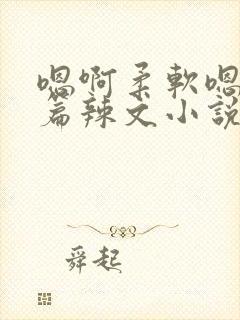 嗯啊柔軟嗯
篇辣文小說
舜起